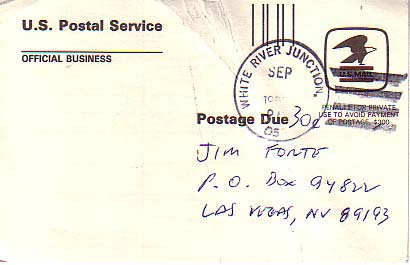 U.S. Postal Service
OFFICIAL BUSINESS
WHITE RIVER JUNCTION,
SEP
05
U.S. MAIL
PENALTY FOR PRIVATE
USE TO AVOID PAYMENT
OF POSTAGE, $300
Postage Due 30¢
JIM FORTE
P.O. BOX 94822
LAS VEGAS, NV 89193